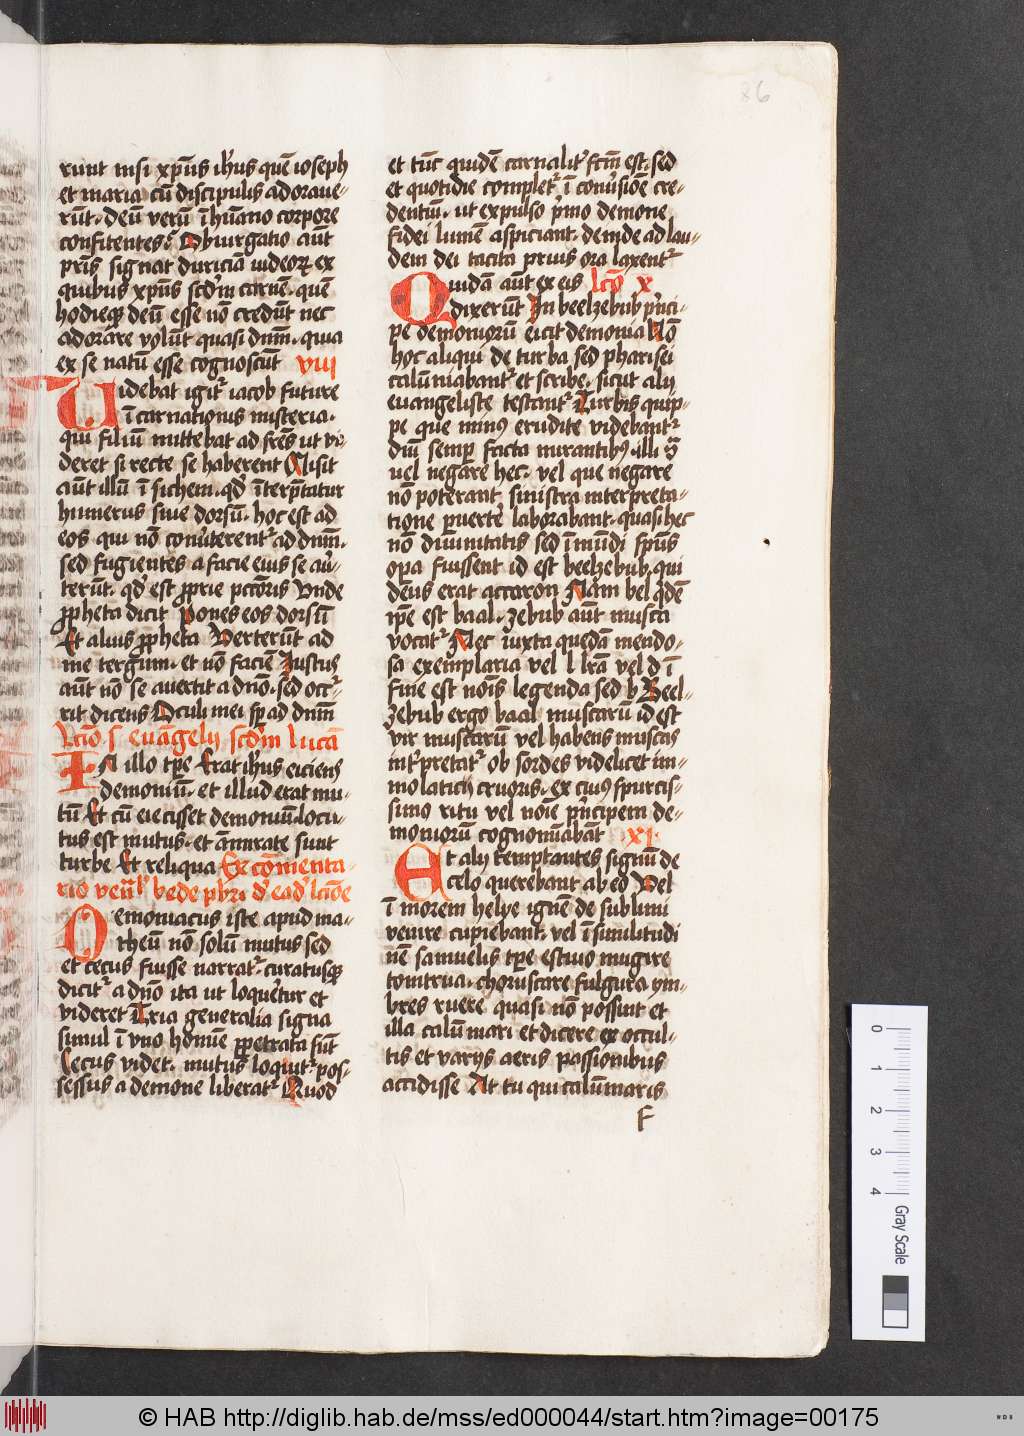 86
runt nisi xp̄us ih̄us quē ioseph
et maria cū discipulis adoraue-
rūt. deū verū ī hūano corpore
confitentes? Obiurgatio aūt
pr̄is signat duriciā iudeoꝝ ex
quibus xp̄us scd̄m carnē. quē
hodieqꝫ deū esse nō credūt nec
adorare volūt quasi dnm̄. quia
ex se natū esse cognoscūt viii
Uidebat igit᷑ iacob future
īcarnationis misteria.
qui filiū mittebat ad fr̄es ut vi-
deret si recte se haberent Misit
aūt illū ī sichem. qd̓ īterp̄tatur
humerus siue dorsū. hoc est ad
eos qui nō conu̓terent᷑ ad dnm̄.
sed fugientes a facie eius se au̓-
terūt. qd̓ est ꝓprie pctōris Vnde
ꝓpheta dicit Pones eos dorsū
Et alius ꝓpheta Verterūt ad
me tergum. et nō faciē Iustus
aūt nō se auertit a dn̄o. sed occ᷑-
rit dicens Oculi mei sꝑ ad dnm̄
Lc̄io s euāgelij scd̄m lucā
In illo tp̄e Erat ih̄us eiciens
demoniū. et illud erat mu-
tū Et cū eiecisset demoniū. locu-
tus est mutus. et ammirate sunt
turbe Et reliqua Ex cōmenta-
rio ven̄l̓ bede pbr̄i d̓ ead̓ lc̄ōe
Demoniacus iste apud ma-
theū nō solū mutus sed
et cecus fuisse narrat᷑. curatusqꝫ
dicit᷑ a dn̄o ita ut loqueretur et
videret Tria generalia signa
simul ī vno hoīe ꝑpetrata sūt
Cecus videt. mutus loquit᷑. pos-
sessus a demone liberat᷑ Quod
et tūc quidē carnalit̓ fc̄m est. sed
et quotidie complet᷑ ī conu̓sione cre-
dentiū. ut expulso p̓mo demone
fidei lumē aspiciant. deinde ad lau-
dem dei tacita prius ora laxent᷑
Quidā aūt ex eis lc̄o x
dixerūt In beelzebub p̓nci-
pe demoniorū eicit demonia Nō
hoc aliqui de turba sed pharisei
calūniabant᷑ et scribe. sicut alij
euangeliste testant᷑ Turbis quip-
pe que minus erudite videbant᷑
dn̄i semper facta mirantibus. illi
uel negare hec. vel que negare
nō poterant sinistra interpreta-
tione puertere laborabant. quasi hec
nō diuinitatis sed īmūdi sp̄us
opa fuissent id est beelzebub. qui
deus erat accaron Nam bel qdē
ip̄e est baal. zebub aūt musca
vocat᷑ Nec iuxta quedā mendo-
sa exemplaria vel l lr̄a vel d ī
fine est nois legenda sed b Beel-
zebub ergo baal muscarū id est
vir muscarū vel habens muscas
int̓pretat᷑ ob sordes videlicet im-
molaticij cruoris. ex cuius spurcis-
simo ritu vel noīe p̓ncipem de-
moniorū cognomīabāt xi
Et alij temptantes signū de
celo querebant ab eo Vel
ī morem helye ignē de sublimi
venire cupiebant. vel ī similitudi
nē samuelis tp̄e estiuo mugire
tonitrua. choruscare fulgura ym-
bres ruere quasi nō possint et
illa calūmari et dicere ex occul-
tis et varijs aeris passionibus
accidisse At tu qui calūmaris
0 1 2 3 4 Gray Scale
© HAB http://diglib.hab.de/mss/ed000044/start.htm?image=00175